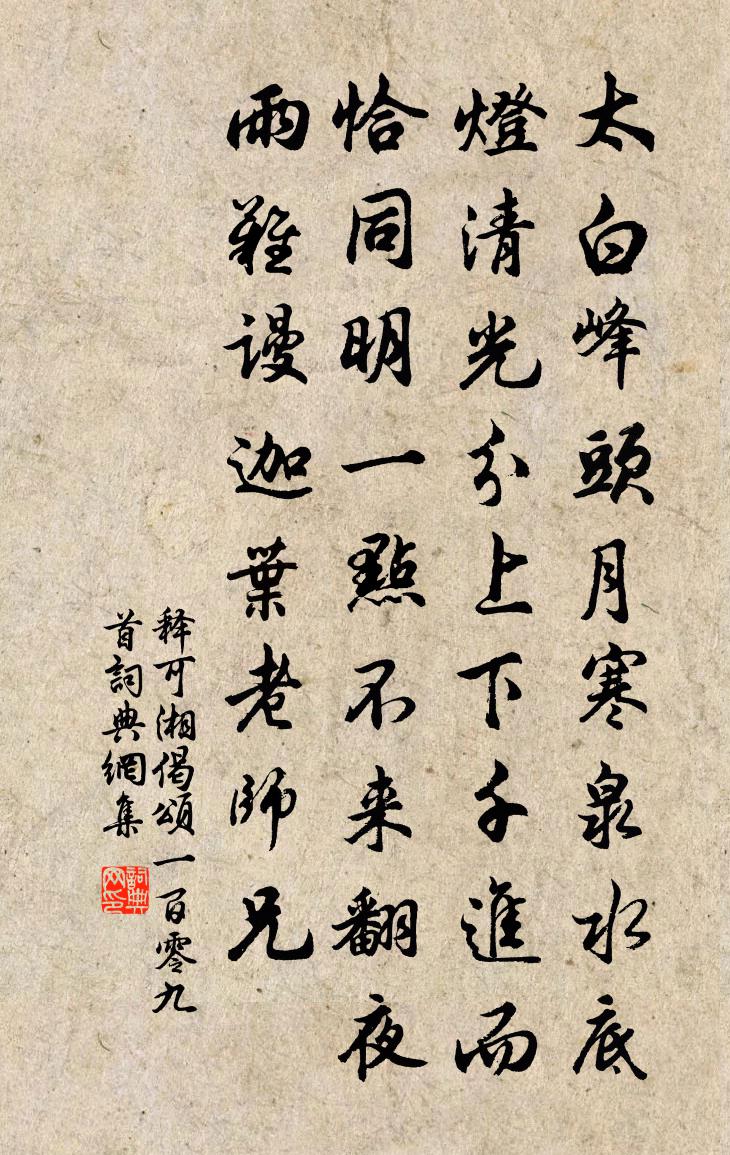 太白峰頭月寒泉水底
燈清光分上下千進而
恰同明一點不来翻夜
雨難謾迦葉老師兄
释可湘偈頌一百零九
首詞典網集
詞典网印